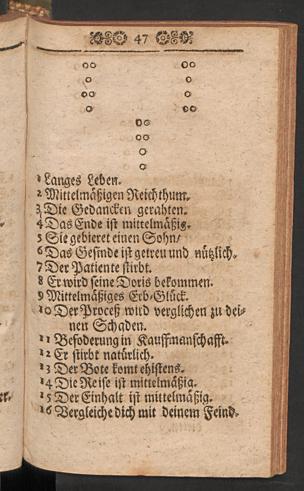 47
1 Langes Leben.
2 Mittelmäßigen Reichthum.
3 Die Gedancken gerahten.
4 Das Ende ist mittelmäßig.
5 Sie gebieret einen Sohn/
6 Das Gesinde ist getreu und nützlich.
7 Der Patiente stirbt.
8 Er wird seine Doris bekommen.
9 Mittelmäßiges Erb-Glück.
10 Der Proceß wird verglichen zu dei-
nen Schaden.
11 Befoderung in Kauffmanschafft.
12 Er stirbt natürlich.
13 Der Bote komt ehistens.
14 Die Reise ist mittelmäßig.
15 Der Einhalt ist mittelmäßig.
16 Vergleiche dich mit deinem Feind.